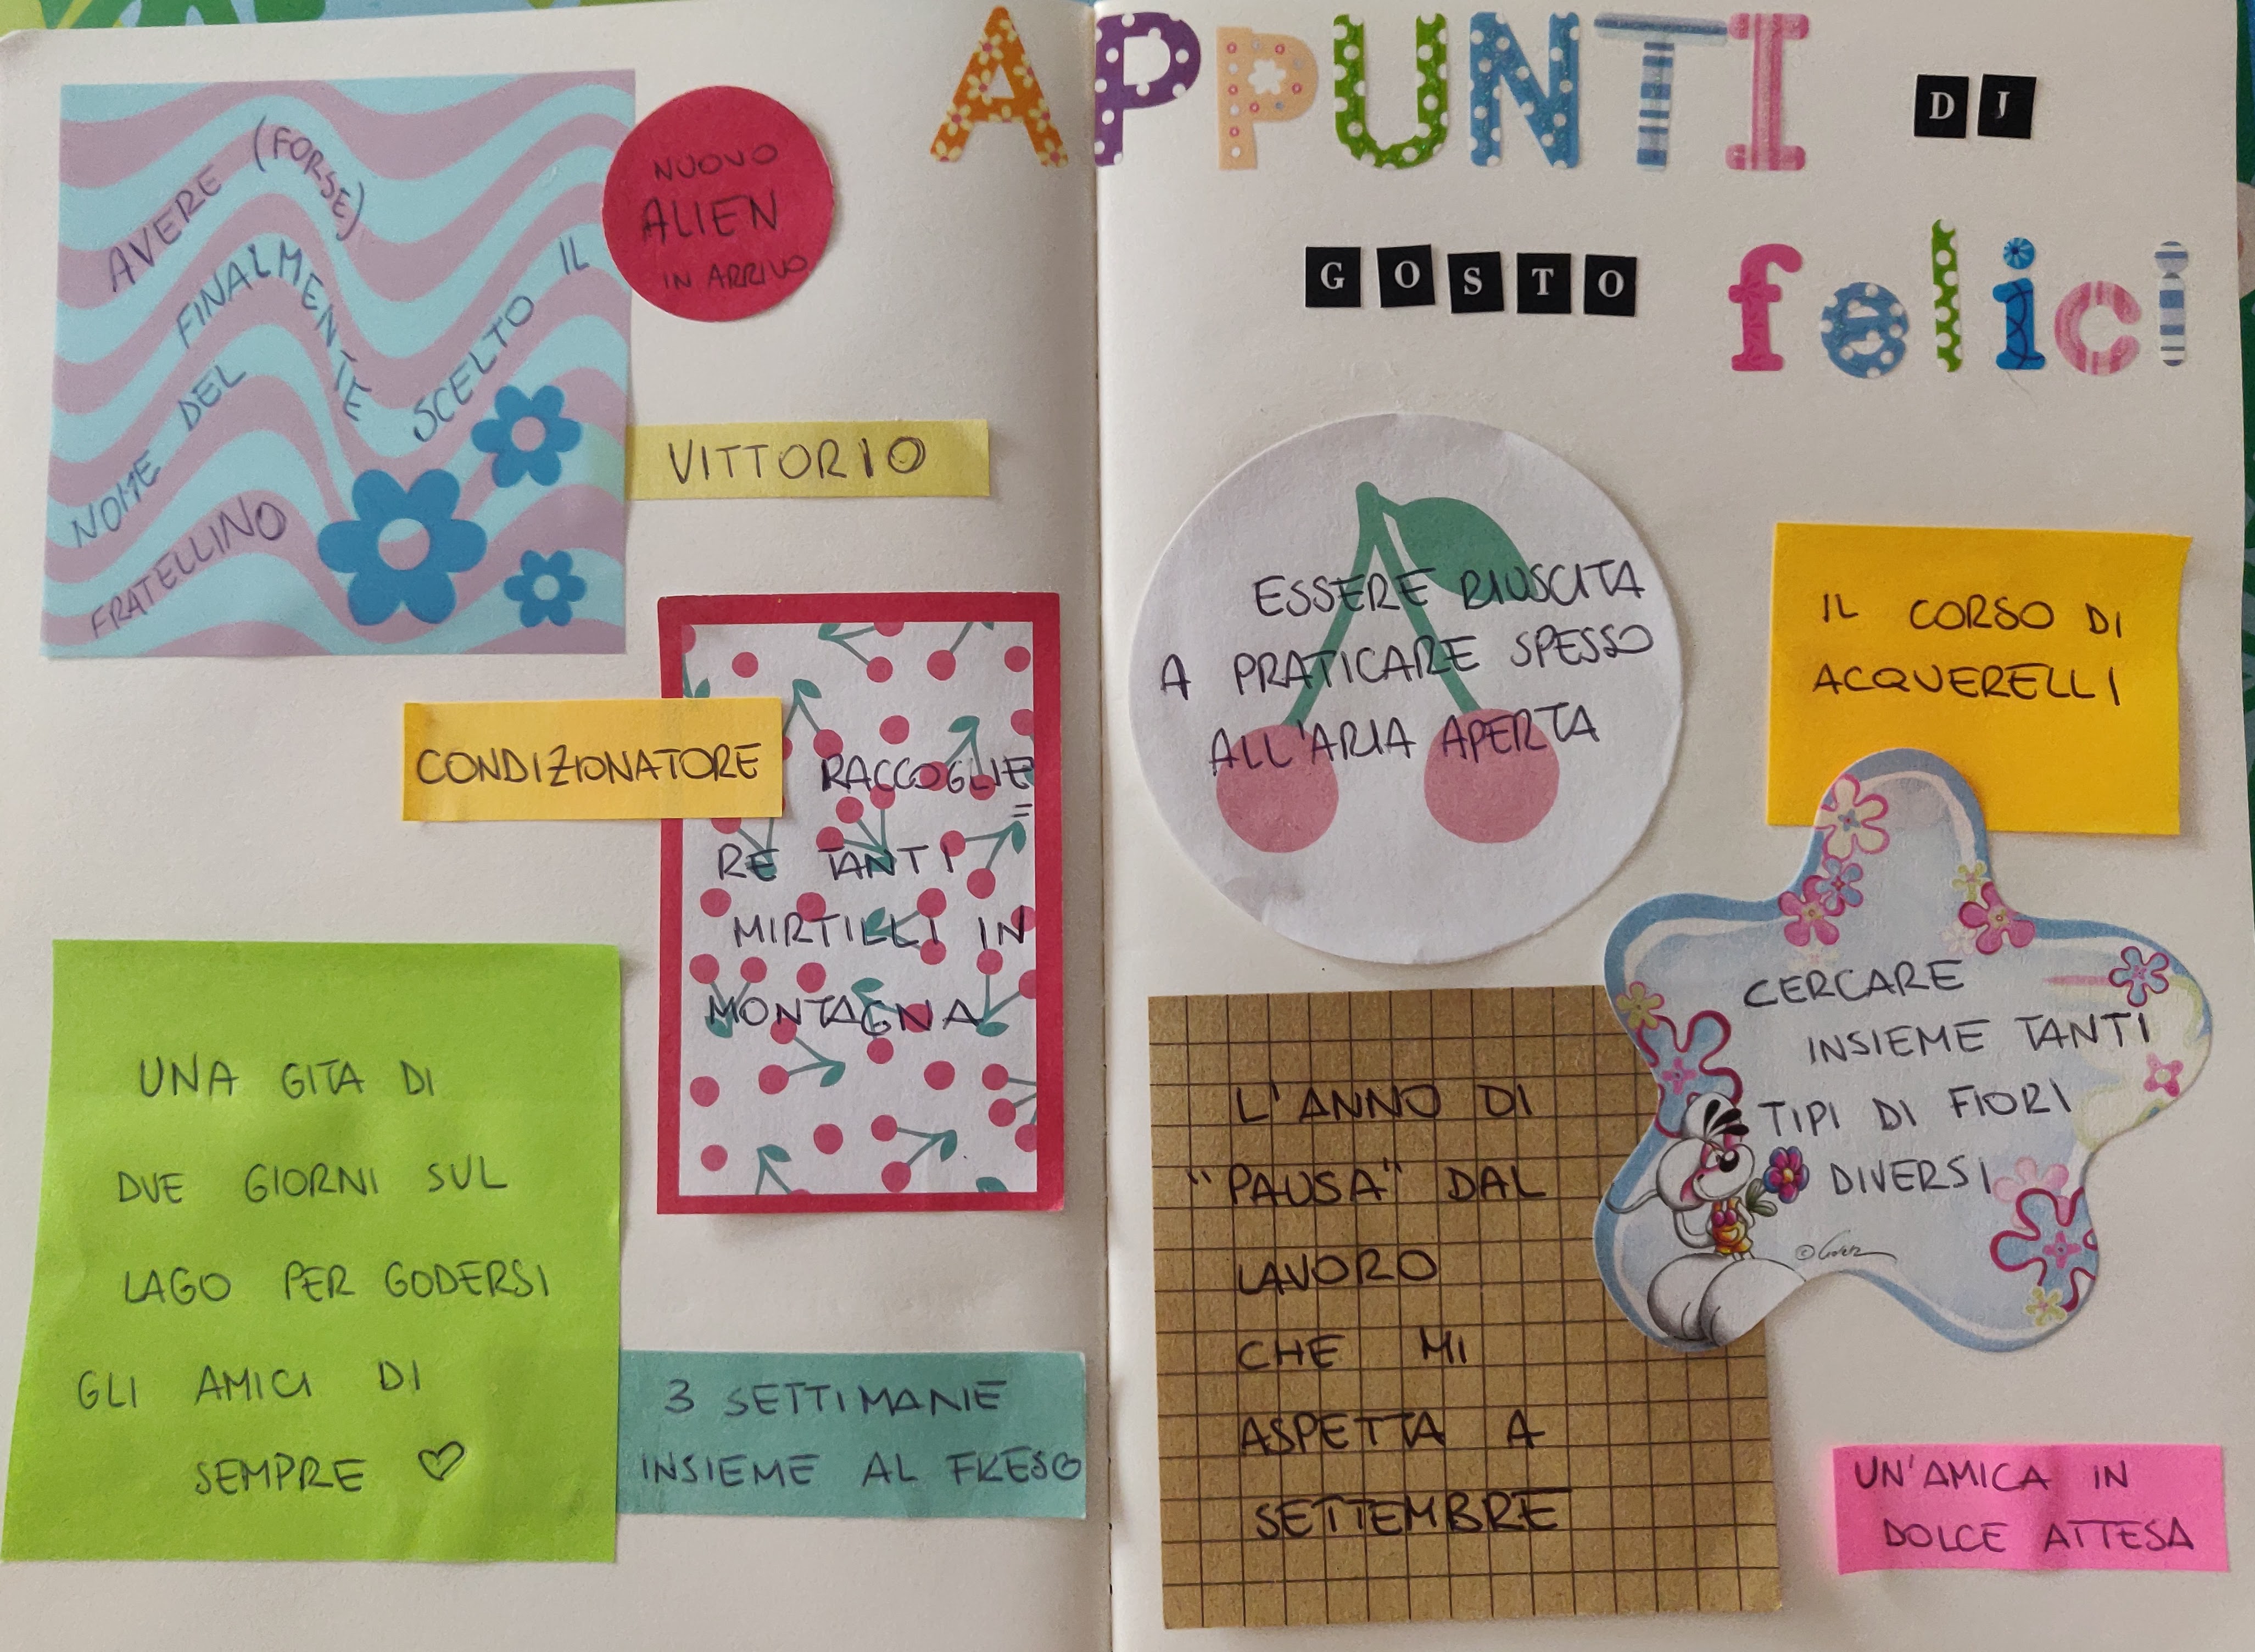 APPUNTI DJ
GOSTO felici
AVERE (FORSE)
FINALMENTE SCELTO IL
NOME DEL
FRATELLINO
NUOVO
ALIEN
IN ARRIVO
VITTORIO
CONDIZIONATORE
RACCOGLIE=
RE TANTI
MIRTILLI IN
MONTAGNA
UNA GITA DI
DUE GIORNI SUL
LAGO PER GODERSI
GLI AMICI DI
SEMPRE ♡
3 SETTIMANE
INSIEME AL FRESCO
ESSERE RIUSCITA
A PRATICARE SPESSO
ALL'ARIA APERTA
IL CORSO DI
ACQUERELLI
CERCARE
INSIEME TANTI
TIPI DI FIORI
DIVERSI
L'ANNO DI
"PAUSA" DAL
LAVORO
CHE MI
ASPETTA A
SETTEMBRE
UN'AMICA IN
DOLCE ATTESA